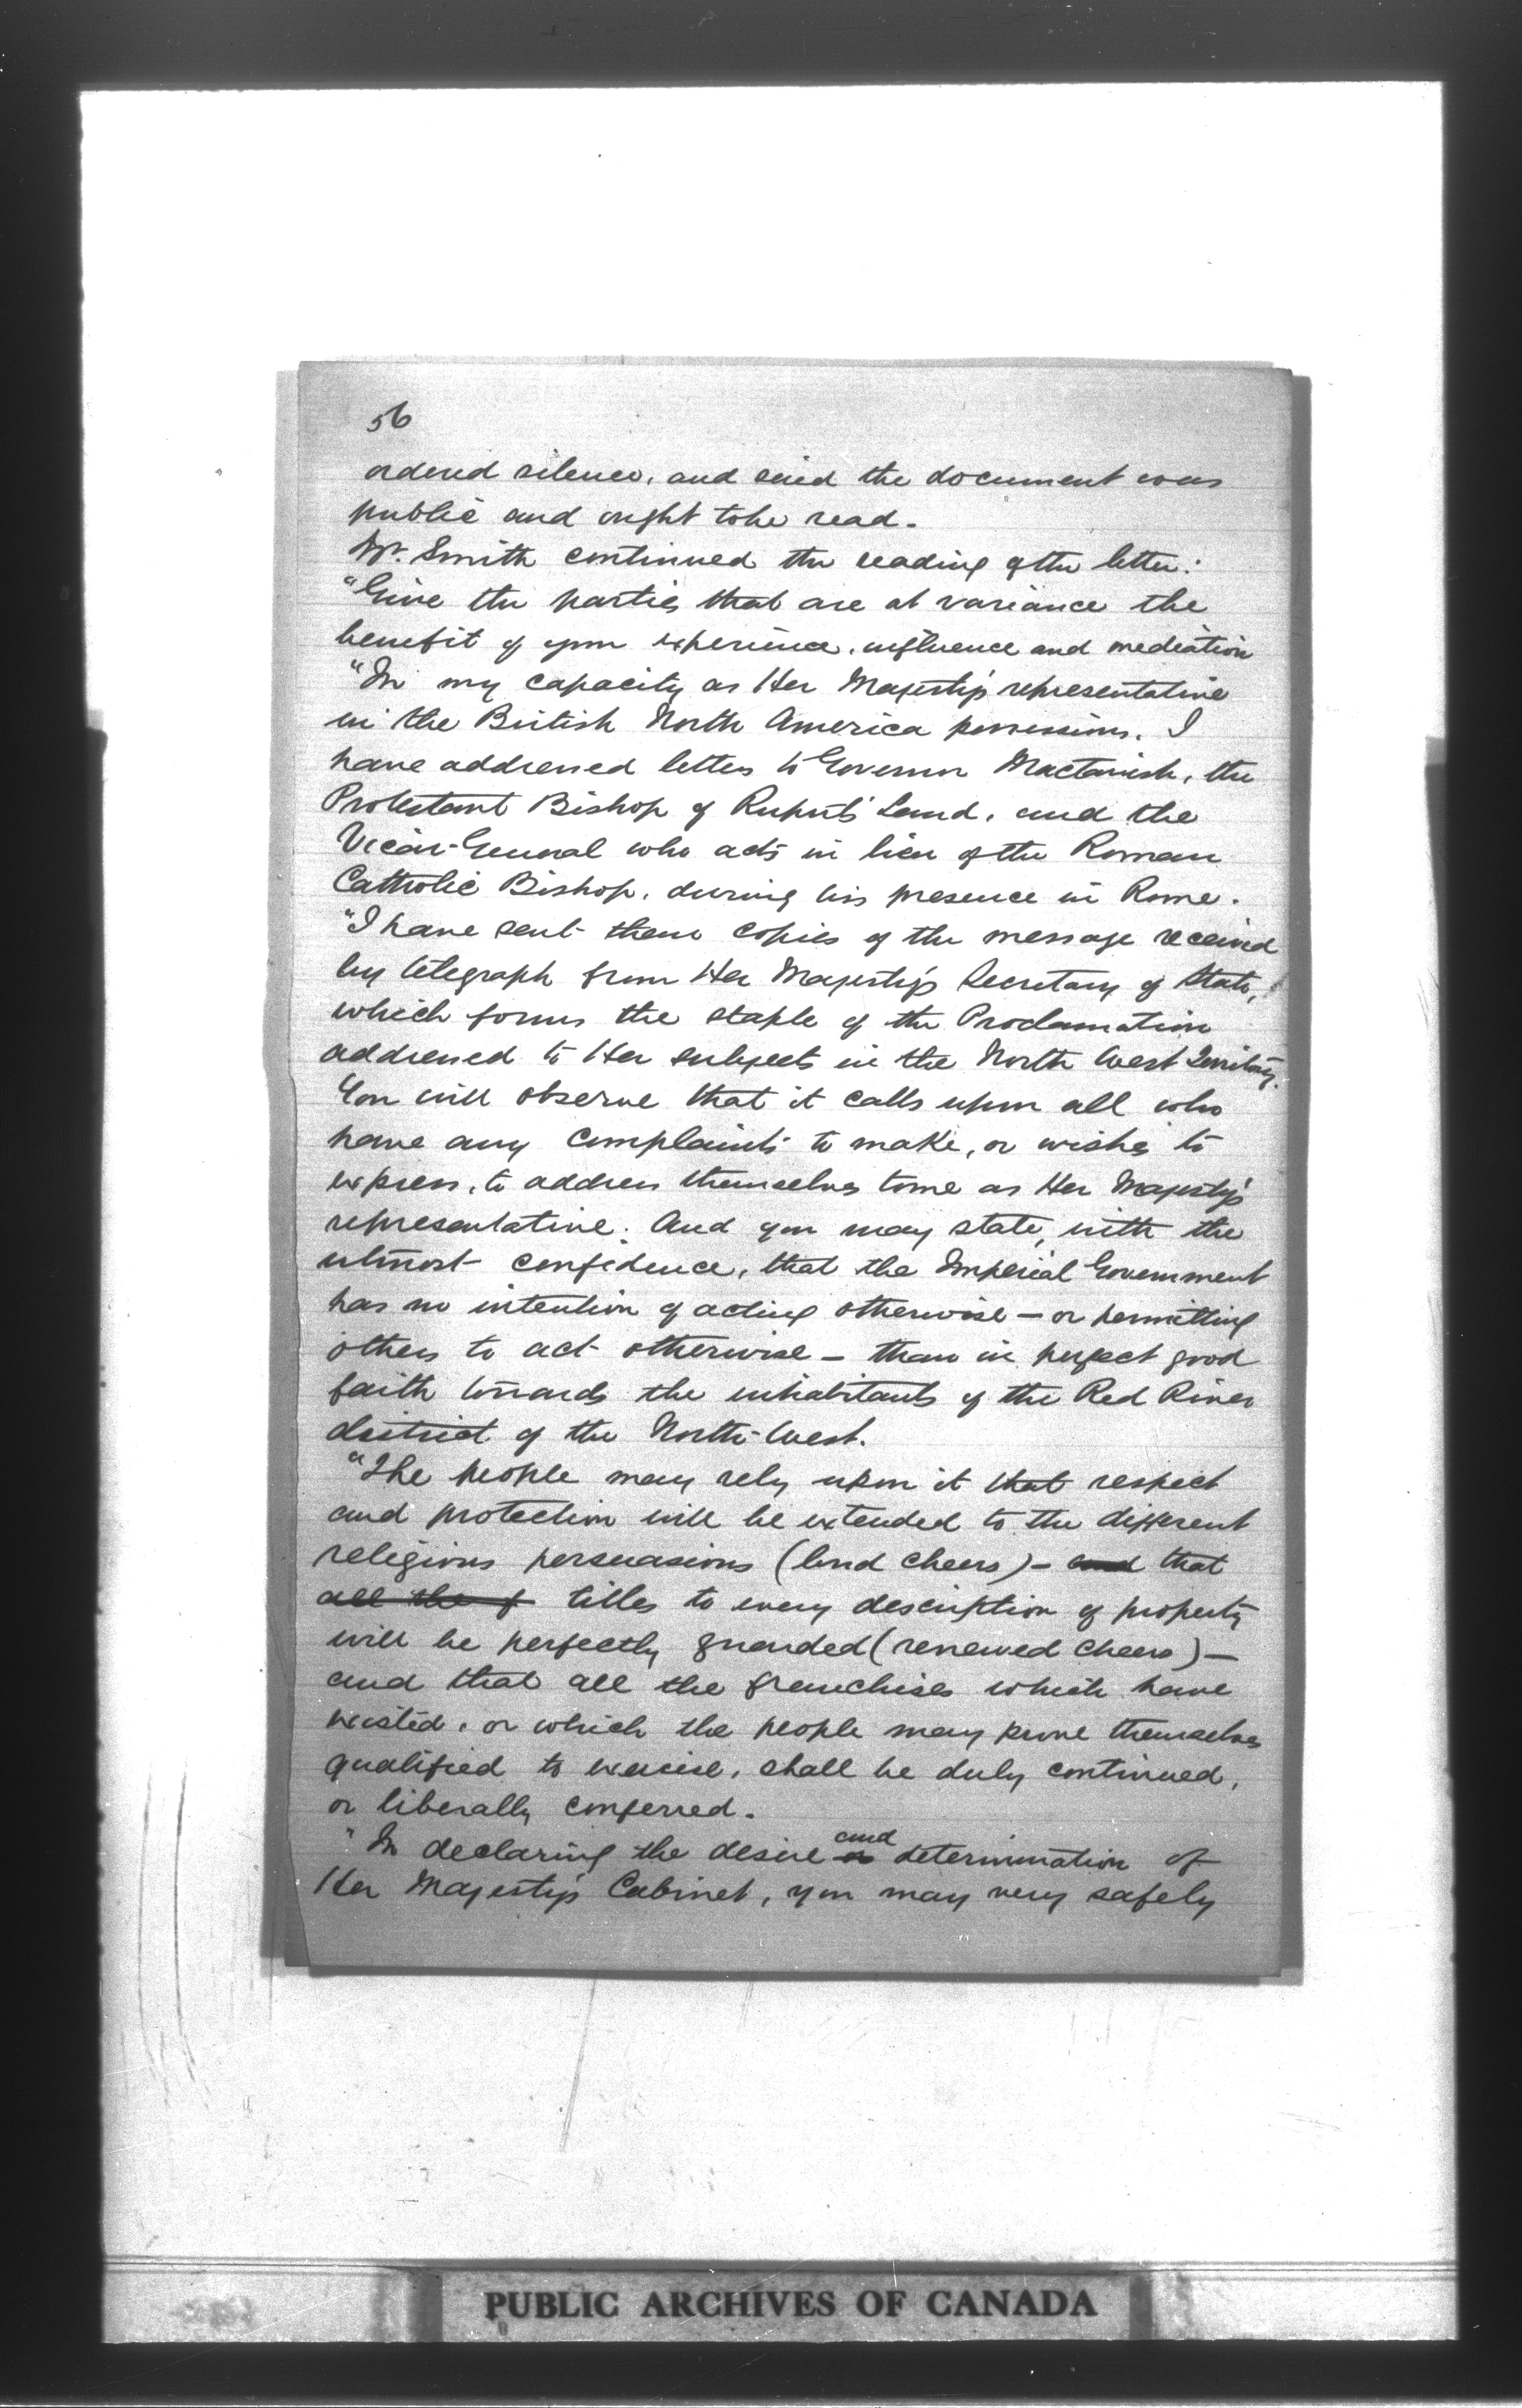 56
ordered silence, and said the document was
public and ought to be read.
Mr. Smith continued the reading of the letter:
"Give the parties that are at variance the
benefit of your experience, influence and mediation
"In my capacity as Her Majesty's representative
in the British North America possessions. I
have addressed letters to Governor Mactavish, the
Protestant Bishop of Rupert's Land, and the
Vicar-General who acts in lieu of the Roman
Catholic Bishop, during his presence in Rome.
"I have sent them copies of the message received
by telegraph from Her Majesty's Secretary of State,
which forms the staple of the Proclamation
addressed to Her subjects in the North West Territory.
You will observe that it calls upon all who
have any complaints to make, or wishes to
express, to address themselves to me as Her Majesty's
representative. And you may state, with the
utmost confidence, that the Imperial Government
has no intention of acting otherwise — or permitting
others to act otherwise — than in perfect good
faith towards the inhabitants of the Red River
district of the North-West.
"The people may rely upon it that respect
and protection will be extended to the different
religious persuasions (loud cheers) — and that
all the f titles to every description of property
will be perfectly guarded (renewed cheers) —
and that all the franchises which have
existed, or which the people may prove themselves
qualified to exercise, shall be duly continued,
or liberally conferred.
"In declaring the desire and determination of
Her Majesty's Cabinet, you may very safely
PUBLIC ARCHIVES OF CANADA